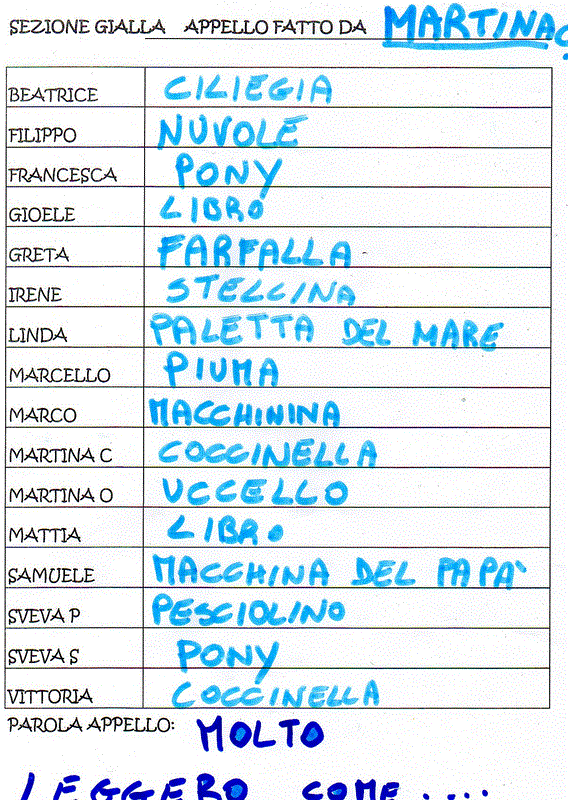 SEZIONE GIALLA APPELLO FATTO DA MARTINA C
BEATRICE CILIEGIA
FILIPPO NUVOLE
FRANCESCA PONY
GIOELE LIBRO
GRETA FARFALLA
IRENE STELLINA
LINDA PALETTA DEL MARE
MARCELLO PIUMA
MARCO MACCHININA
MARTINA C COCCINELLA
MARTINA O UCCELLO
MATTIA LIBRO
SAMUELE MACCHINA DEL PAPA'
SVEVA P PESCIOLINO
SVEVA S PONY
VITTORIA COCCINELLA
PAROLA APPELLO: MOLTO
LEGGERO COME....